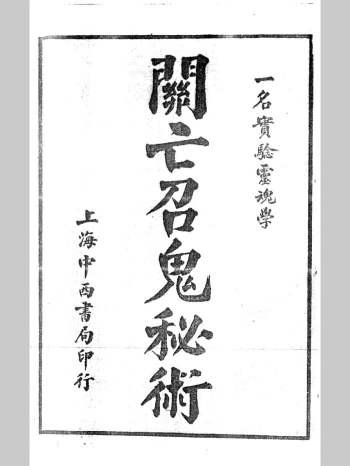 一名實驗靈魂學
關亡召鬼秘術
上海中西書局印行